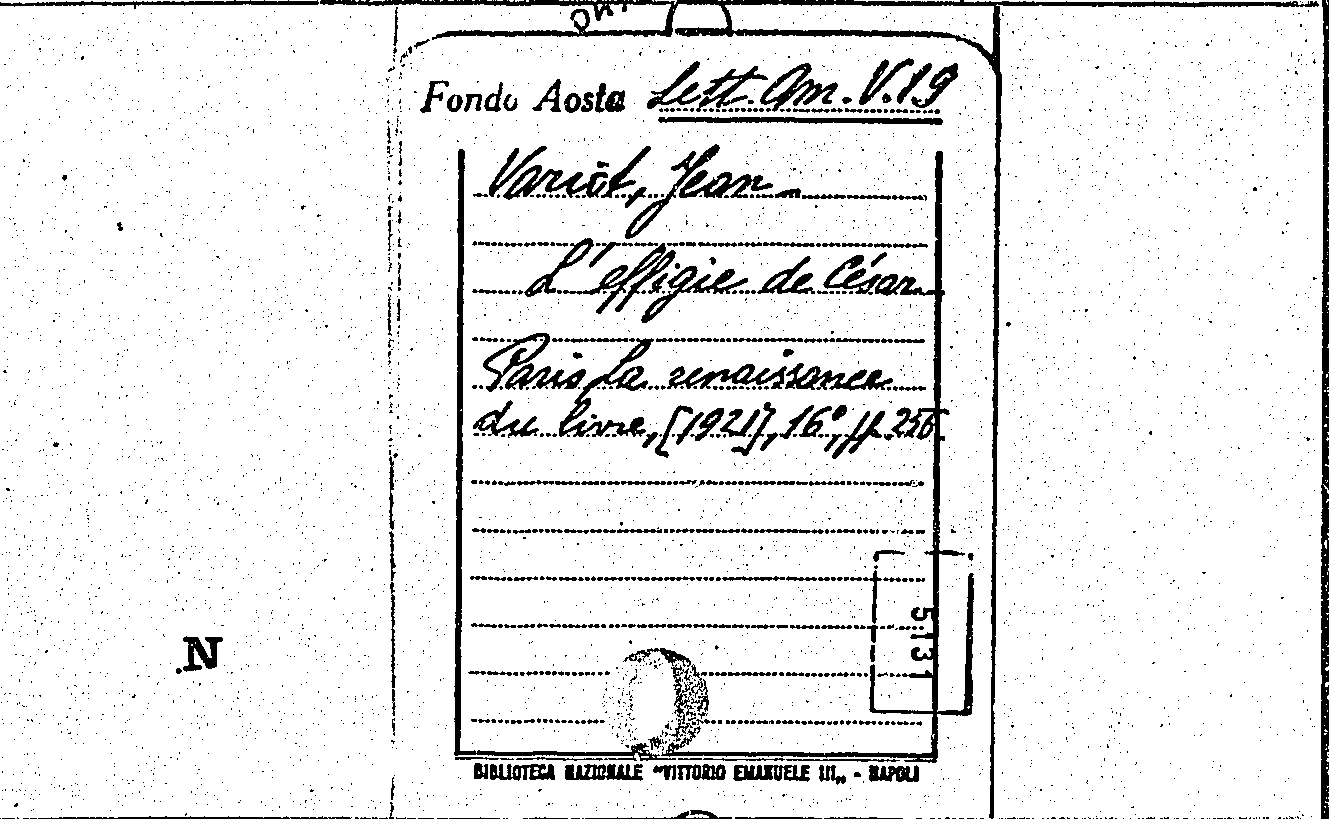 Fondo Aosta Lett. Am. V. 19
Variot, Jean
L'effigie de César
Paris, La renaissance
du livre, [1921], 16°, pp. 256.
5131
N
BIBLIOTECA NAZIONALE "VITTORIO EMANUELE III„ - NAPOLI